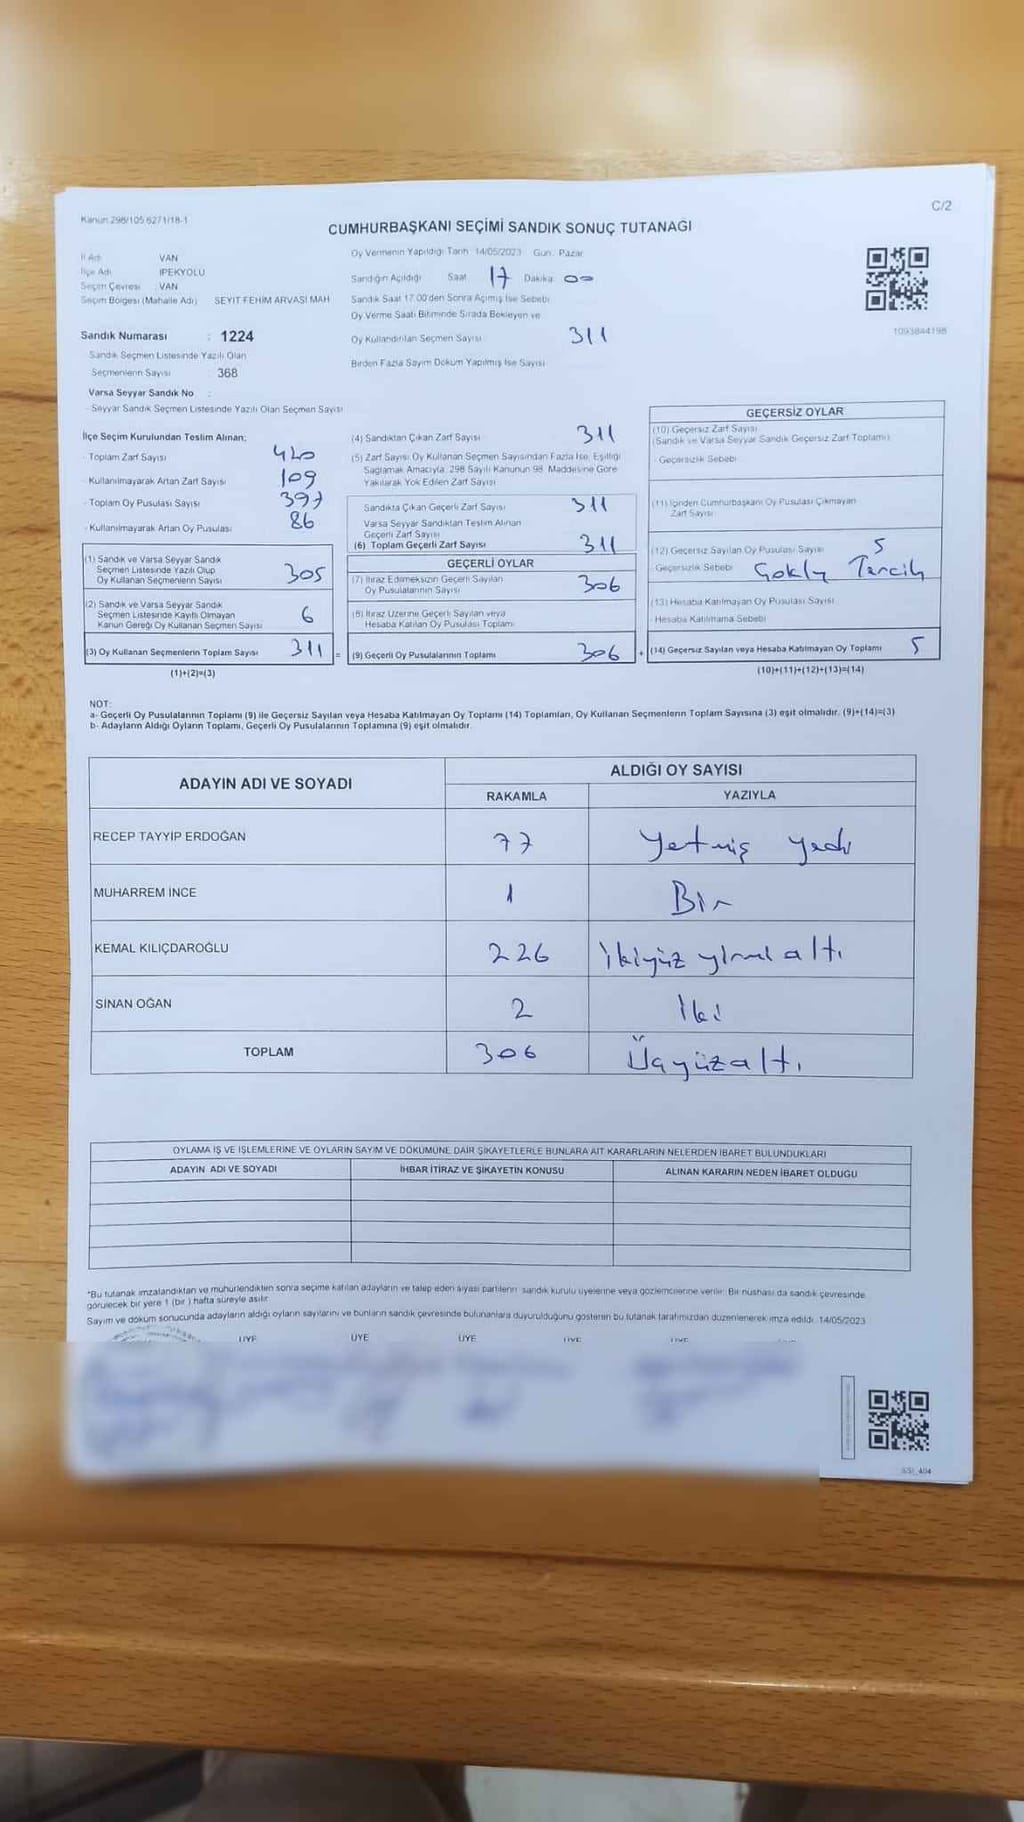 Kanun 298/105 6271/18-1
C/2
CUMHURBAŞKANI SEÇİMİ SANDIK SONUÇ TUTANAĞI
İl Adı : VAN
İlçe Adı : İPEKYOLU
Seçim Çevresi : VAN
Seçim Bölgesi (Mahalle Adı) SEYİT FEHİM ARVASİ MAH
Sandık Numarası : 1224
Sandık Seçmen Listesinde Yazılı Olan
Seçmenlerin Sayısı 368
Varsa Seyyar Sandık No :
- Seyyar Sandık Seçmen Listesinde Yazılı Olan Seçmen Sayısı
Oy Vermenin Yapıldığı Tarih 14/05/2023 Gün: Pazar
Sandığın Açıldığı Saat 17 Dakika 00
Sandık Saat 17.00'den Sonra Açılmış İse Sebebi
Oy Verme Saati Bitiminde Sırada Bekleyen ve
Oy Kullandırılan Seçmen Sayısı 311
Birden Fazla Sayım Döküm Yapılmış İse Sayısı
1093844198
İlçe Seçim Kurulundan Teslim Alınan;
- Toplam Zarf Sayısı 420
- Kullanılmayarak Artan Zarf Sayısı 109
- Toplam Oy Pusulası Sayısı 397
- Kullanılmayarak Artan Oy Pusulası 86
(1) Sandık ve Varsa Seyyar Sandık
Seçmen Listesinde Yazılı Olup
Oy Kullanan Seçmenlerin Sayısı 305
(2) Sandık ve Varsa Seyyar Sandık
Seçmen Listesinde Kayıtlı Olmayan
Kanun Gereği Oy Kullanan Seçmen Sayısı 6
(3) Oy Kullanan Seçmenlerin Toplam Sayısı 311 =
(1)+(2)=(3)
(4) Sandıktan Çıkan Zarf Sayısı 311
(5) Zarf Sayısı Oy Kullanan Seçmen Sayısından Fazla İse, Eşitliği
Sağlamak Amacıyla, 298 Sayılı Kanunun 98. Maddesine Göre
Yakılarak Yok Edilen Zarf Sayısı
Sandıkta Çıkan Geçerli Zarf Sayısı 311
Varsa Seyyar Sandıktan Teslim Alınan
Geçerli Zarf Sayısı
(6) Toplam Geçerli Zarf Sayısı 311
GEÇERLİ OYLAR
(7) İtiraz Edilmeksizin Geçerli Sayılan
Oy Pusulalarının Sayısı 306
(8) İtiraz Üzerine Geçerli Sayılan veya
Hesaba Katılan Oy Pusulası Toplamı
(9) Geçerli Oy Pusulalarının Toplamı 306 +
GEÇERSİZ OYLAR
(10) Geçersiz Zarf Sayısı
(Sandık ve Varsa Seyyar Sandık Geçersiz Zarf Toplamı)
- Geçersizlik Sebebi
(11) İçinden Cumhurbaşkanı Oy Pusulası Çıkmayan
Zarf Sayısı
(12) Geçersiz Sayılan Oy Pusulası Sayısı 5
- Geçersizlik Sebebi Çoklu Tercih
(13) Hesaba Katılmayan Oy Pusulası Sayısı
- Hesaba Katılmama Sebebi
(14) Geçersiz Sayılan veya Hesaba Katılmayan Oy Toplamı 5
(10)+(11)+(12)+(13)=(14)
NOT:
a- Geçerli Oy Pusulalarının Toplamı (9) ile Geçersiz Sayılan veya Hesaba Katılmayan Oy Toplamı (14) Toplamları, Oy Kullanan Seçmenlerin Toplam Sayısına (3) eşit olmalıdır. (9)+(14)=(3)
b- Adayların Aldığı Oyların Toplamı, Geçerli Oy Pusulalarının Toplamına (9) eşit olmalıdır.
ADAYIN ADI VE SOYADI ALDIĞI OY SAYISI
RAKAMLA YAZIYLA
RECEP TAYYİP ERDOĞAN 77 Yetmiş yedi
MUHARREM İNCE 1 Bir
KEMAL KILIÇDAROĞLU 226 İkiyüz yirmi altı
SİNAN OĞAN 2 İki
TOPLAM 306 Üçyüzaltı
OYLAMA İŞ VE İŞLEMLERİNE VE OYLARIN SAYIM VE DÖKÜMÜNE DAİR ŞİKAYETLERLE BUNLARA AİT KARARLARIN NELERDEN İBARET BULUNDUKLARI
ADAYIN ADI VE SOYADI İHBAR İTİRAZ VE ŞİKAYETİN KONUSU ALINAN KARARIN NEDEN İBARET OLDUĞU
*Bu tutanak imzalandıktan ve mühürlendikten sonra seçime katılan adayların ve talep eden siyasi partilerin sandık kurulu üyelerine veya gözlemcilerine verilir. Bir nüshası da sandık çevresinde
görülecek bir yere 1 (bir) hafta süreyle asılır.
Sayım ve döküm sonucunda adayların aldığı oyların sayılarını ve bunların sandık çevresinde bulunanlara duyurulduğunu gösteren bu tutanak tarafımızdan düzenlenerek imza edildi. 14/05/2023
ÜYE ÜYE ÜYE ÜYE ÜYE